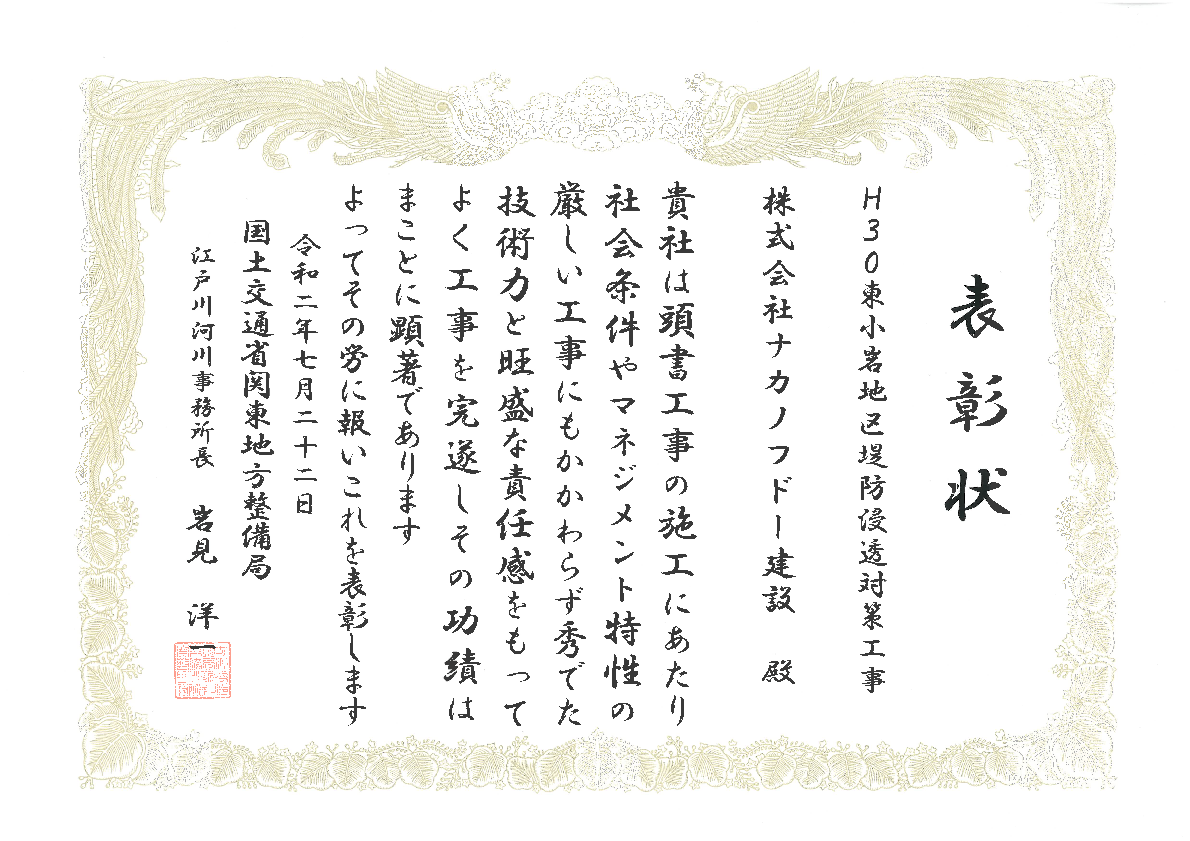 表彰状
H30東小岩地区堤防浸透対策工事
株式会社ナカノフドー建設 殿
貴社は頭書工事の施工にあたり
社会条件やマネジメント特性の
厳しい工事にもかかわらず秀でた
技術力と旺盛な責任感をもって
よく工事を完遂しその功績は
まことに顕著であります
よってその労に報いこれを表彰します
令和二年七月二十二日
国土交通省関東地方整備局
江戸川河川事務所長 岩見 洋一